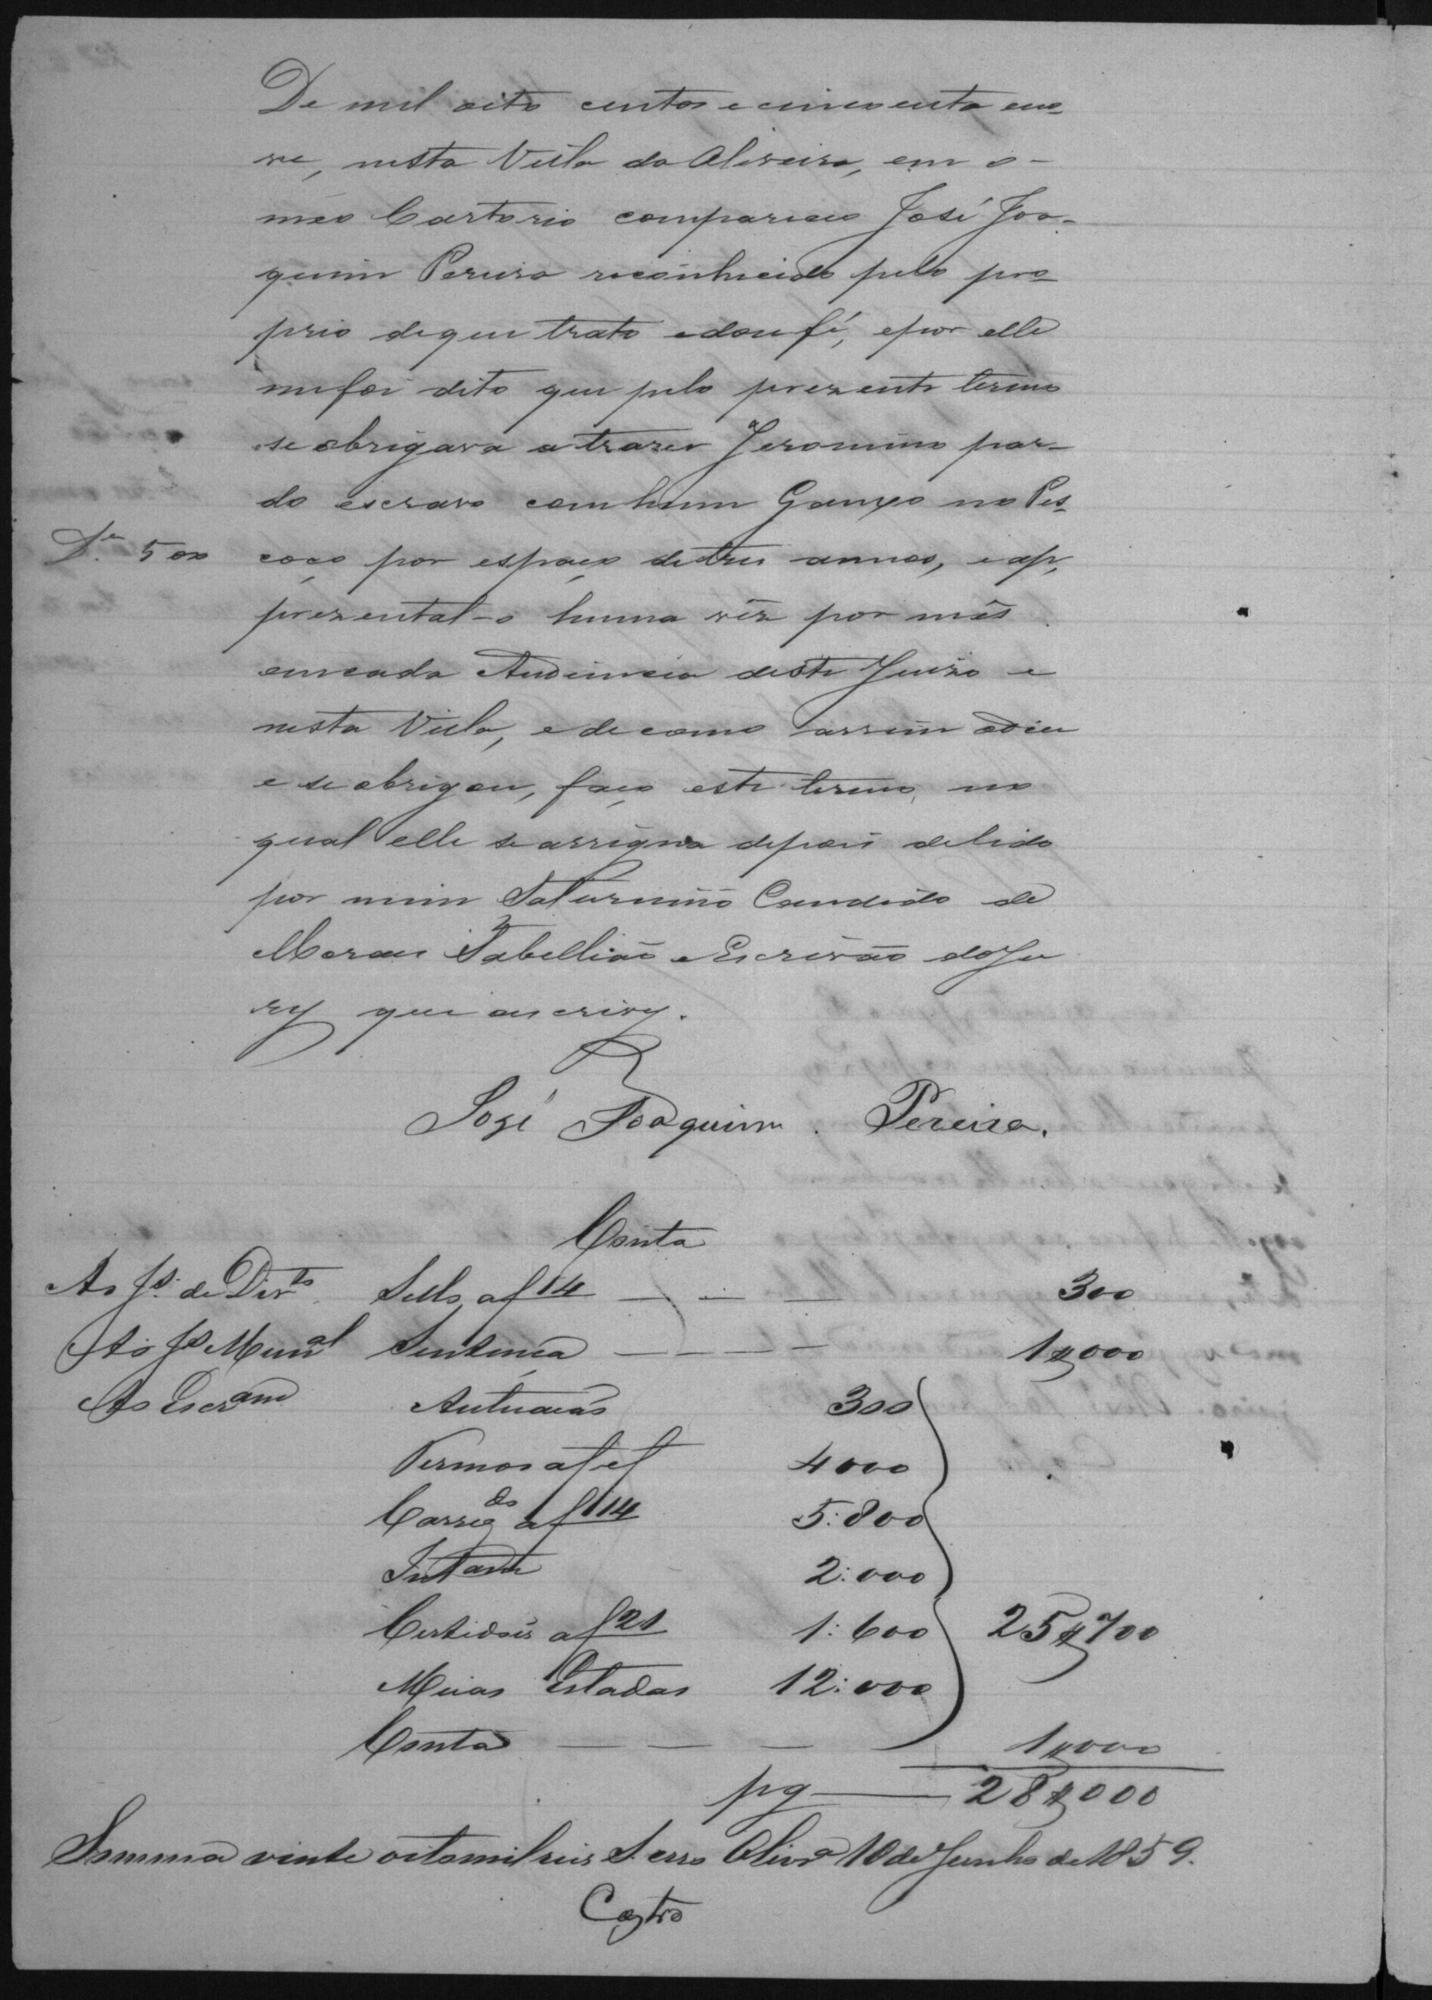 De mil oito centos e cincoenta eno-
ve, nesta Villa da Oliveira, em o-
meo Cartorio compareceo José Joa-
quim Pereira reconhecido pelo pro-
prio dequem trato edoufé, epor elle
mefoi dito que pelo prezente termo
se obrigava atrazer Jeronimo par-
do escravo comhum Ganxo no Pes-
coço por espaço detres annos, e ap,
prezental-o huma vêz por mês
emcada Audiencia deste Juizo e
nesta Villa, e decomo assim odice
e se obrigou, faço este termo, no
qual elle se assigna depois delido
por mim Saturnino Candido de
Moraes Tabellião e Escrivão doJu
ry que oescrivy.
Dº. 500
José Joaquim Pereira.
Conta
Ao Jz. de Dirto. Sello af 14 300
Ao Jz Munal Sentença 1$000
Ao Escram Autuacão 300
Termos af et 4000
Carregdo af 114 5:800
Intam 2:000
Certidoẽs af 21 1:600 25$700
Meias Estadas 12:000
Conta 1$000
pg 28$000
Somma vinte oitomilreis S. erro Olivra 10 de Junho de 1859.
Castro